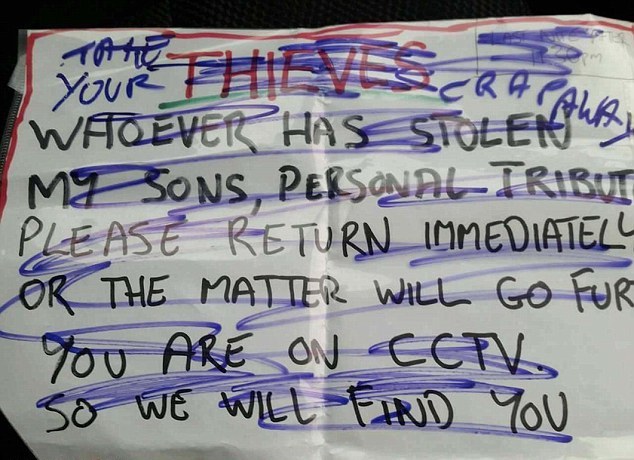 TAKE
YOUR
THIEVES
CRAP AWAY
WHOEVER HAS STOLEN
MY SONS, PERSONAL TRIBUT
PLEASE RETURN IMMEDIATELL
OR THE MATTER WILL GO FUR
YOU ARE ON CCTV.
SO WE WILL FIND YOU